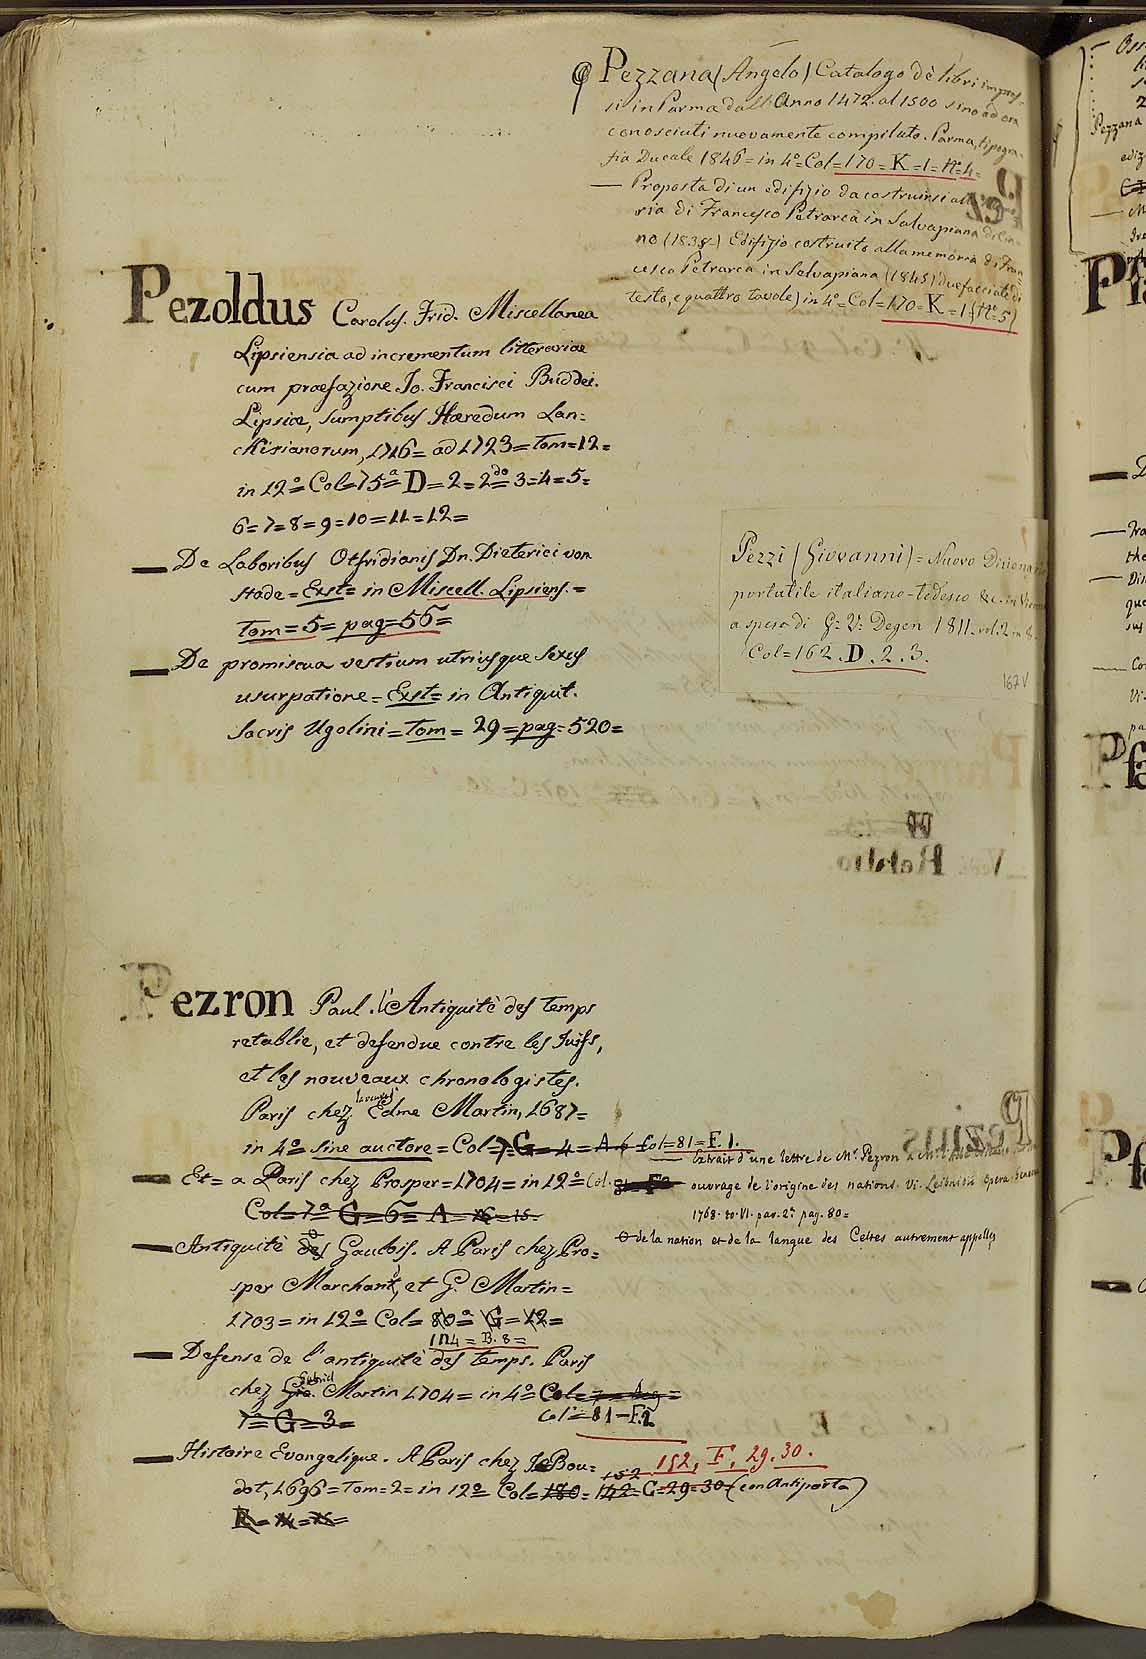 Pezzana (Angelo) Catalogo dè libri impres-
si in Parma dall'Anno 1472. al 1500 sino ad ora
conosciuti nuovamente compilato. Parma, tipogra-
fia Ducale 1846 = in 4º = Col = 170 = K = 1 = Nº 4 =
— Proposta di un edifizio da costruirsi alla
ria di Francesco Petrarca in Selvapiana di
no (1838) Edifizio costruito alla memoria di Fran
cesco Petrarca in Selvapiana (1845) due facciate di
testo, e quattro tavole) in 4º = Col = 170 = K = 1 (Nº 5)
Pezoldus Carolus. Frid. Miscellanea
Lipsiensia ad incrementum litterariae
cum praefazione Jo. Francisci Buddei.
Lipsiae, sumptibus Haeredum Lan=
ckisianorum, 1716 = ad 1723 = Tom = 12 =
in 12º = Col = 75ª = D = 2 = 2do = 3 = 4 = 5 =
6 = 7 = 8 = 9 = 10 = 11 = 12 =
— De Laboribus Otfridianis Dn. Dieterici von
Stade = Ext = in Miscell. Lipsiens. =
Tom = 5 = pag = 56 =
— De promiscua vestium utriusque sexus
usurpatione = Ext = in Antiquit.
Sacris Ugolini = Tom = 29 = pag = 520 =
Pezzi (Giovanni) = Nuovo Diziona
portatile italiano-tedesco &c. in Vienna
a spese di G: V: Degen 1811. vol: 2. in 8.
Col = 162. D. 2. 3.
167v
Pezron Paul. l'Antiquitè des temps
retablie, et defendue contre les Juifs,
et les nouveaux chronologistes.
Paris chez Edme Martin, 1687 =
in 4º = sine auctore = Col = 7 = G = 4 = A. 6 Col = 81 = F. 1.
— Extrait d'une lettre de Mr. Pezron a Mr.
— Et = a Paris chez Prosper = 1704 = in 12º = Col.
ouvrage de l'origine des nations. Vi. Leibnitii opera
Col = 7ª G = 6 = A = 16 = 15.
1768. to. VI. par. 2ª pag. 80 =
— Antiquitè des Gaulois. A Paris chez Pro=
de la nation et de la langue des Celtes autrement appellès
sper Marchant, et G. Martin =
1703 = in 12º = Col = 80ª = G = 12 =
114 = B. 8 =
— Defense de l'antiquitè des temps. Paris
chez Gabriel Martin 1704 = in 4º Col = 7 =
7ª = G = 3 = Col = 81 — F. 2
— Histoire Evangelique. A Paris chez Je Bou=
152, F, 29. 30.
dot, 1696 = Tom = 2 = in 12º Col = 180 = 142 = C = 29 = 30 = (con Antiporta)